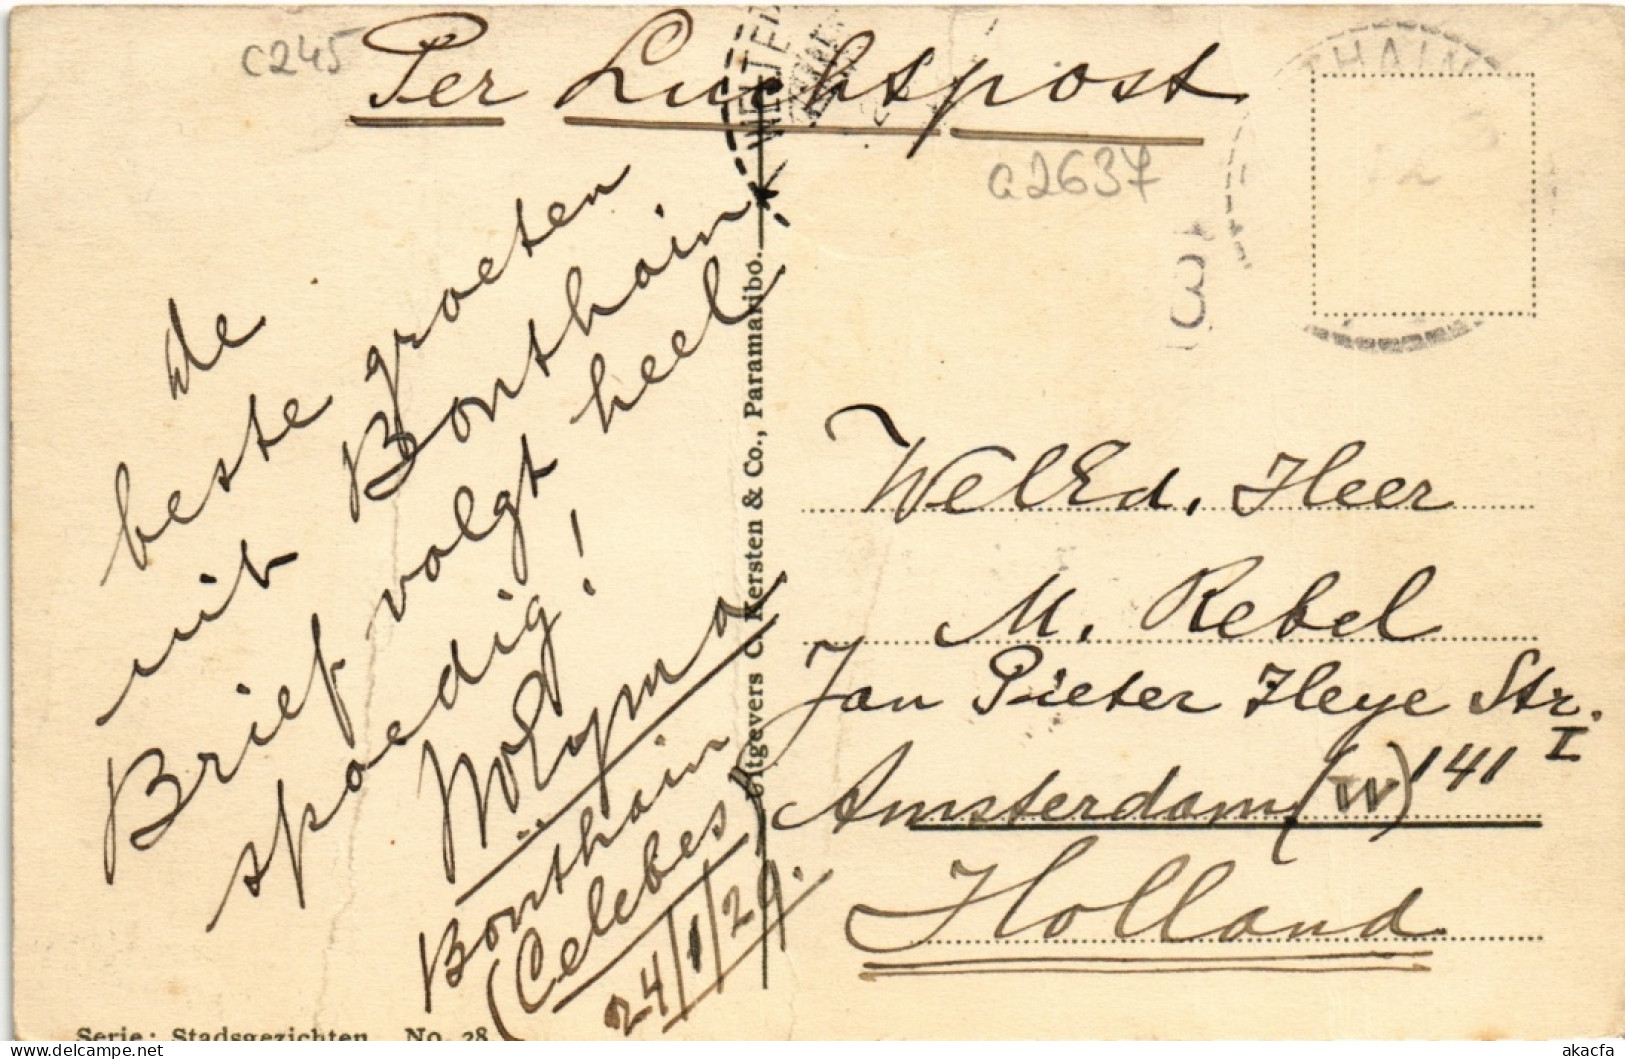 c245
Per Luchtpost
a2637
de
beste groeten
uit Bonthain
Brief volgt heel
spoedig!
Bonthain
(Celebes)
24/1/29.
Uitgevers C. Kersten & Co., Paramaribo.
WelEd. Heer
M. Rebel
Jan Pieter Heye Str.
141 I
Amsterdam (W)
Holland
Serie: Stadsgezichten No. 28
akacfa